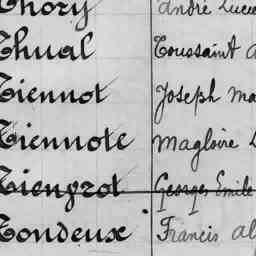 Thory André Lucie
Thual Toussaint A
Tiennot Joseph Ma
Tiennote Magloire
Tiengrot Georges Emile
Tondeux Francis Al